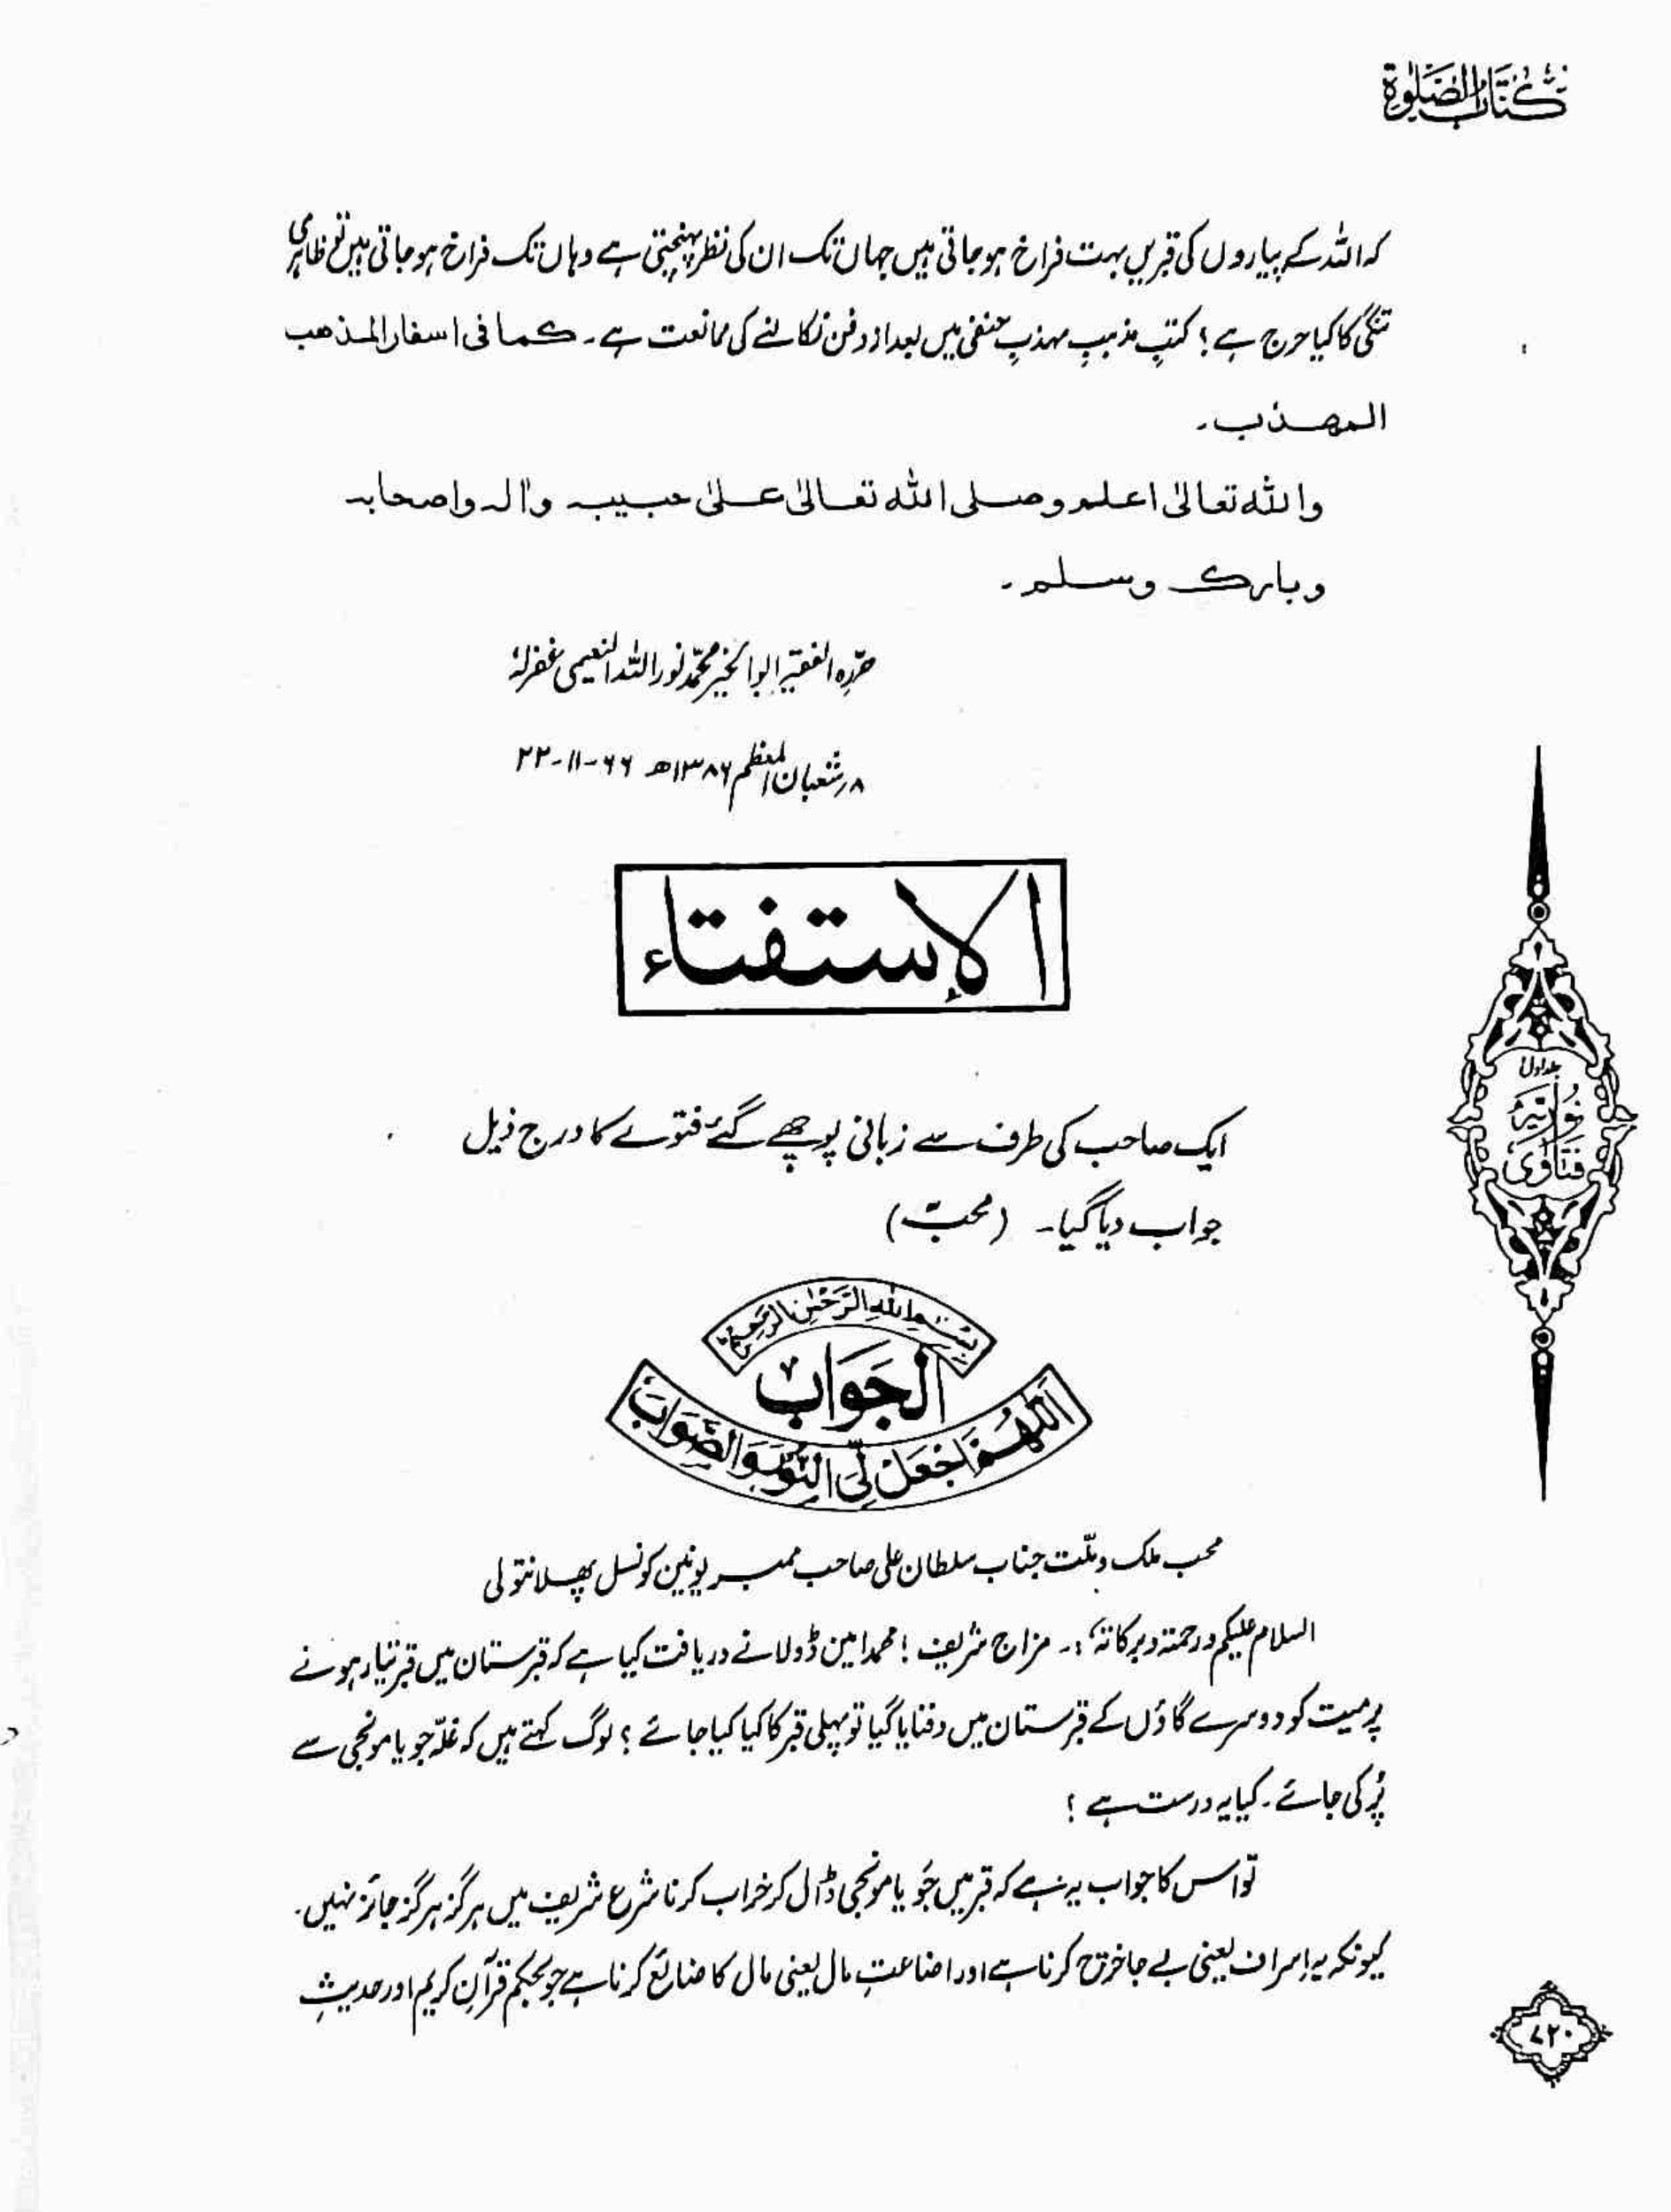 كتاب الصلوٰة
کہ اللہ کے پیاروں کی قبریں بہت فراخ ہو جاتی ہیں جہاں تک ان کی نظر پہنچتی ہے وہاں تک فراخ ہو جاتی ہیں تو ظاہری
تنگی کا کیا حرج ہے ؟ کتبِ مذہبِ مہذبِ حنفی میں بعد از دفن نکالنے کی ممانعت ہے۔ کما فی اسفار المذهب
المهذب۔
واللہ تعالیٰ اعلم وصلی اللہ تعالیٰ علیٰ حبیبہ واٰلہ واصحابہ
وبارک وسلم۔
حرّرہ الفقیر ابوالخیر محمّد نور اللہ النعیمی غفرلہٗ
۸ رشعبان المعظم ۱۳۸۶ھ ۶۶-۱۱-۲۲
الإستفتاء
ایک صاحب کی طرف سے زبانی پوچھے گئے فتوے کا درج ذیل
جواب دیا گیا۔ (محبّ)
بِسْمِ اللهِ الرَّحْمٰنِ الرَّحِيْمِ
الجَوَاب
اَللّٰهُمَّ اجْعَلْ لِّيَ النُّوْرَ وَالصَّوَابَ
محب ملک و ملّت جناب سلطان علی صاحب ممبر یونین کونسل پھلانتولی
السلام علیکم ورحمتہ وبرکاتہٗ :۔ مزاج شریف ! محمد امین ڈولا نے دریافت کیا ہے کہ قبرستان میں قبر تیار ہونے
پر میت کو دوسرے گاؤں کے قبرستان میں دفنایا گیا تو پہلی قبر کا کیا کیا جائے ؟ لوگ کہتے ہیں کہ غلّہ جو یا مونجی سے
پُر کی جائے۔ کیا یہ درست ہے ؟
تو اس کا جواب یہ ہے کہ قبر میں جَو یا مونجی ڈال کر خراب کرنا شرع شریف میں ہرگز ہرگز جائز نہیں۔
کیونکہ یہ اِسراف یعنی بے جا خرچ کرنا ہے اور اضاعتِ مال یعنی مال کا ضائع کرنا ہے جو بحکم قرآنِ کریم اور حدیثِ
جلد اول
فتاویٰ نوریہ
۷۲۰